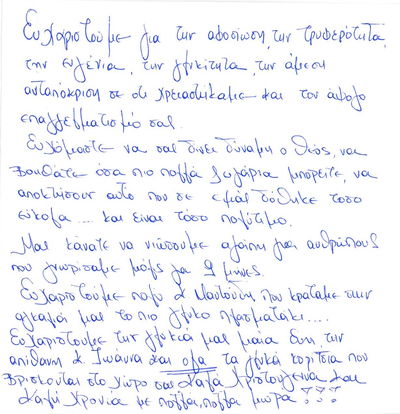 Ευχαριστούμε για την αφοσίωση, την τρυφερότητα,
την ευγένια, την γλυκίτητα, την άμεση
ανταπόκριση σε ότι χρειαστήκαμε και τον άψογο
επαγγελματισμό σας.
Ευχόμαστε να σας δίνει δύναμη ο Θεός, να
βοηθάτε όσα πιο πολλά ζυγάρια μπορείτε, να
αποκτήσουν αυτό που σε εμάς δόθηκε τόσο
εύκολα.... και είναι τόσο πολύτιμο.
Μας κάνατε να νιώσουμε αγάπη για ανθρώπους
που γνωρίσαμε μόλις για 9 μήνες.
Ευχαριστούμε πολύ που κρατάμε στην
αγκαλιά μας το πιο γλυκό πλασματάκι....
Ευχαριστούμε την γλυκιά μας μαία την
απίθανη Ιωάννα και όλα τα γλυκά κορίτσια που
βρίσκονται στο χώρο σας Καλά Χριστούγεννα και
Καλή Χρονιά με πολλά, πολλά μωρά !!!